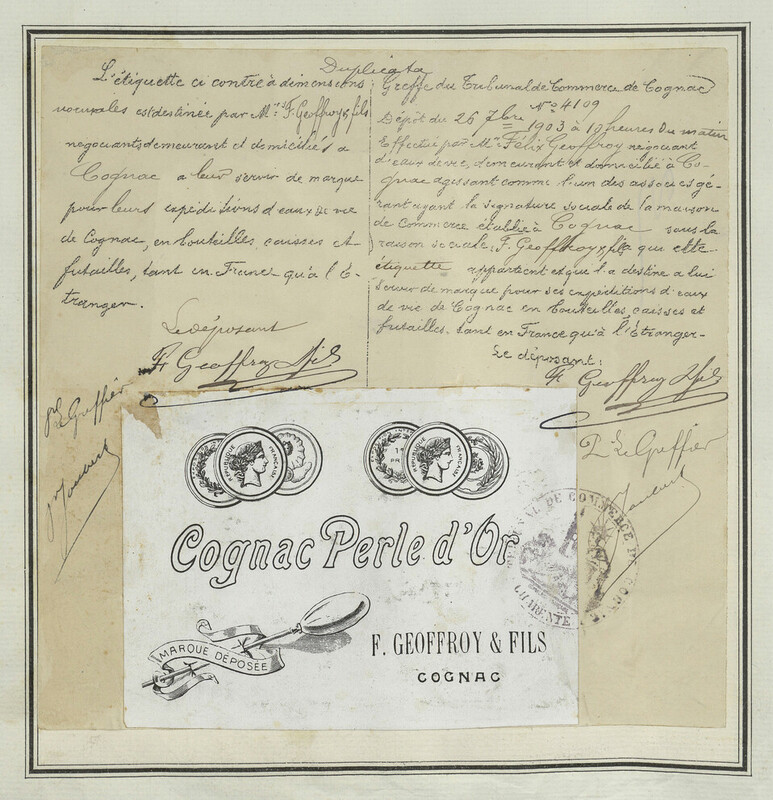 Duplicata
L'étiquette ci contre à dimensions
est destinée par M.rs F. Geoffroy & fils
negociants demeurant et domiciliés a
Cognac a leur servir de marque
pour leurs expéditions d'eaux de vie
de Cognac, en bouteilles, caisses et
futailles, tant en France qu'à l'E-
tranger.
Le déposant
F. Geoffroy & fils
Greffe du Tribunal de Commerce de Cognac
N° 4109
Dépôt du 26 7bre 1903 à 10 heures du matin
Effectué par M.r Félix Geoffroy négociant
d'eaux de vie, demeurant et domicilié à Co-
gnac agissant comme l'un des associés gé-
rant ayant la signature sociale de la maison
de Commerce établie à Cognac sous la
raison sociale: F. Geoffroy & fils que cette
étiquette appartient et que l'a destine a lui
servir de marque pour ses expéditions d'eaux
de vie de Cognac en bouteilles, caisses et
futailles. tant en France qu'à l'Étranger-
Le déposant:
F. Geoffroy & fils
pr Le Greffier
Pr Le Greffier
RÉPUBLIQUE FRANÇAISE
RÉPUBLIQUE FRANÇAISE
Cognac Perle d'Or
MARQUE DÉPOSÉE
F. GEOFFROY & FILS
COGNAC
TRIBUNAL DE COMMERCE DE COGNAC
CHARENTE